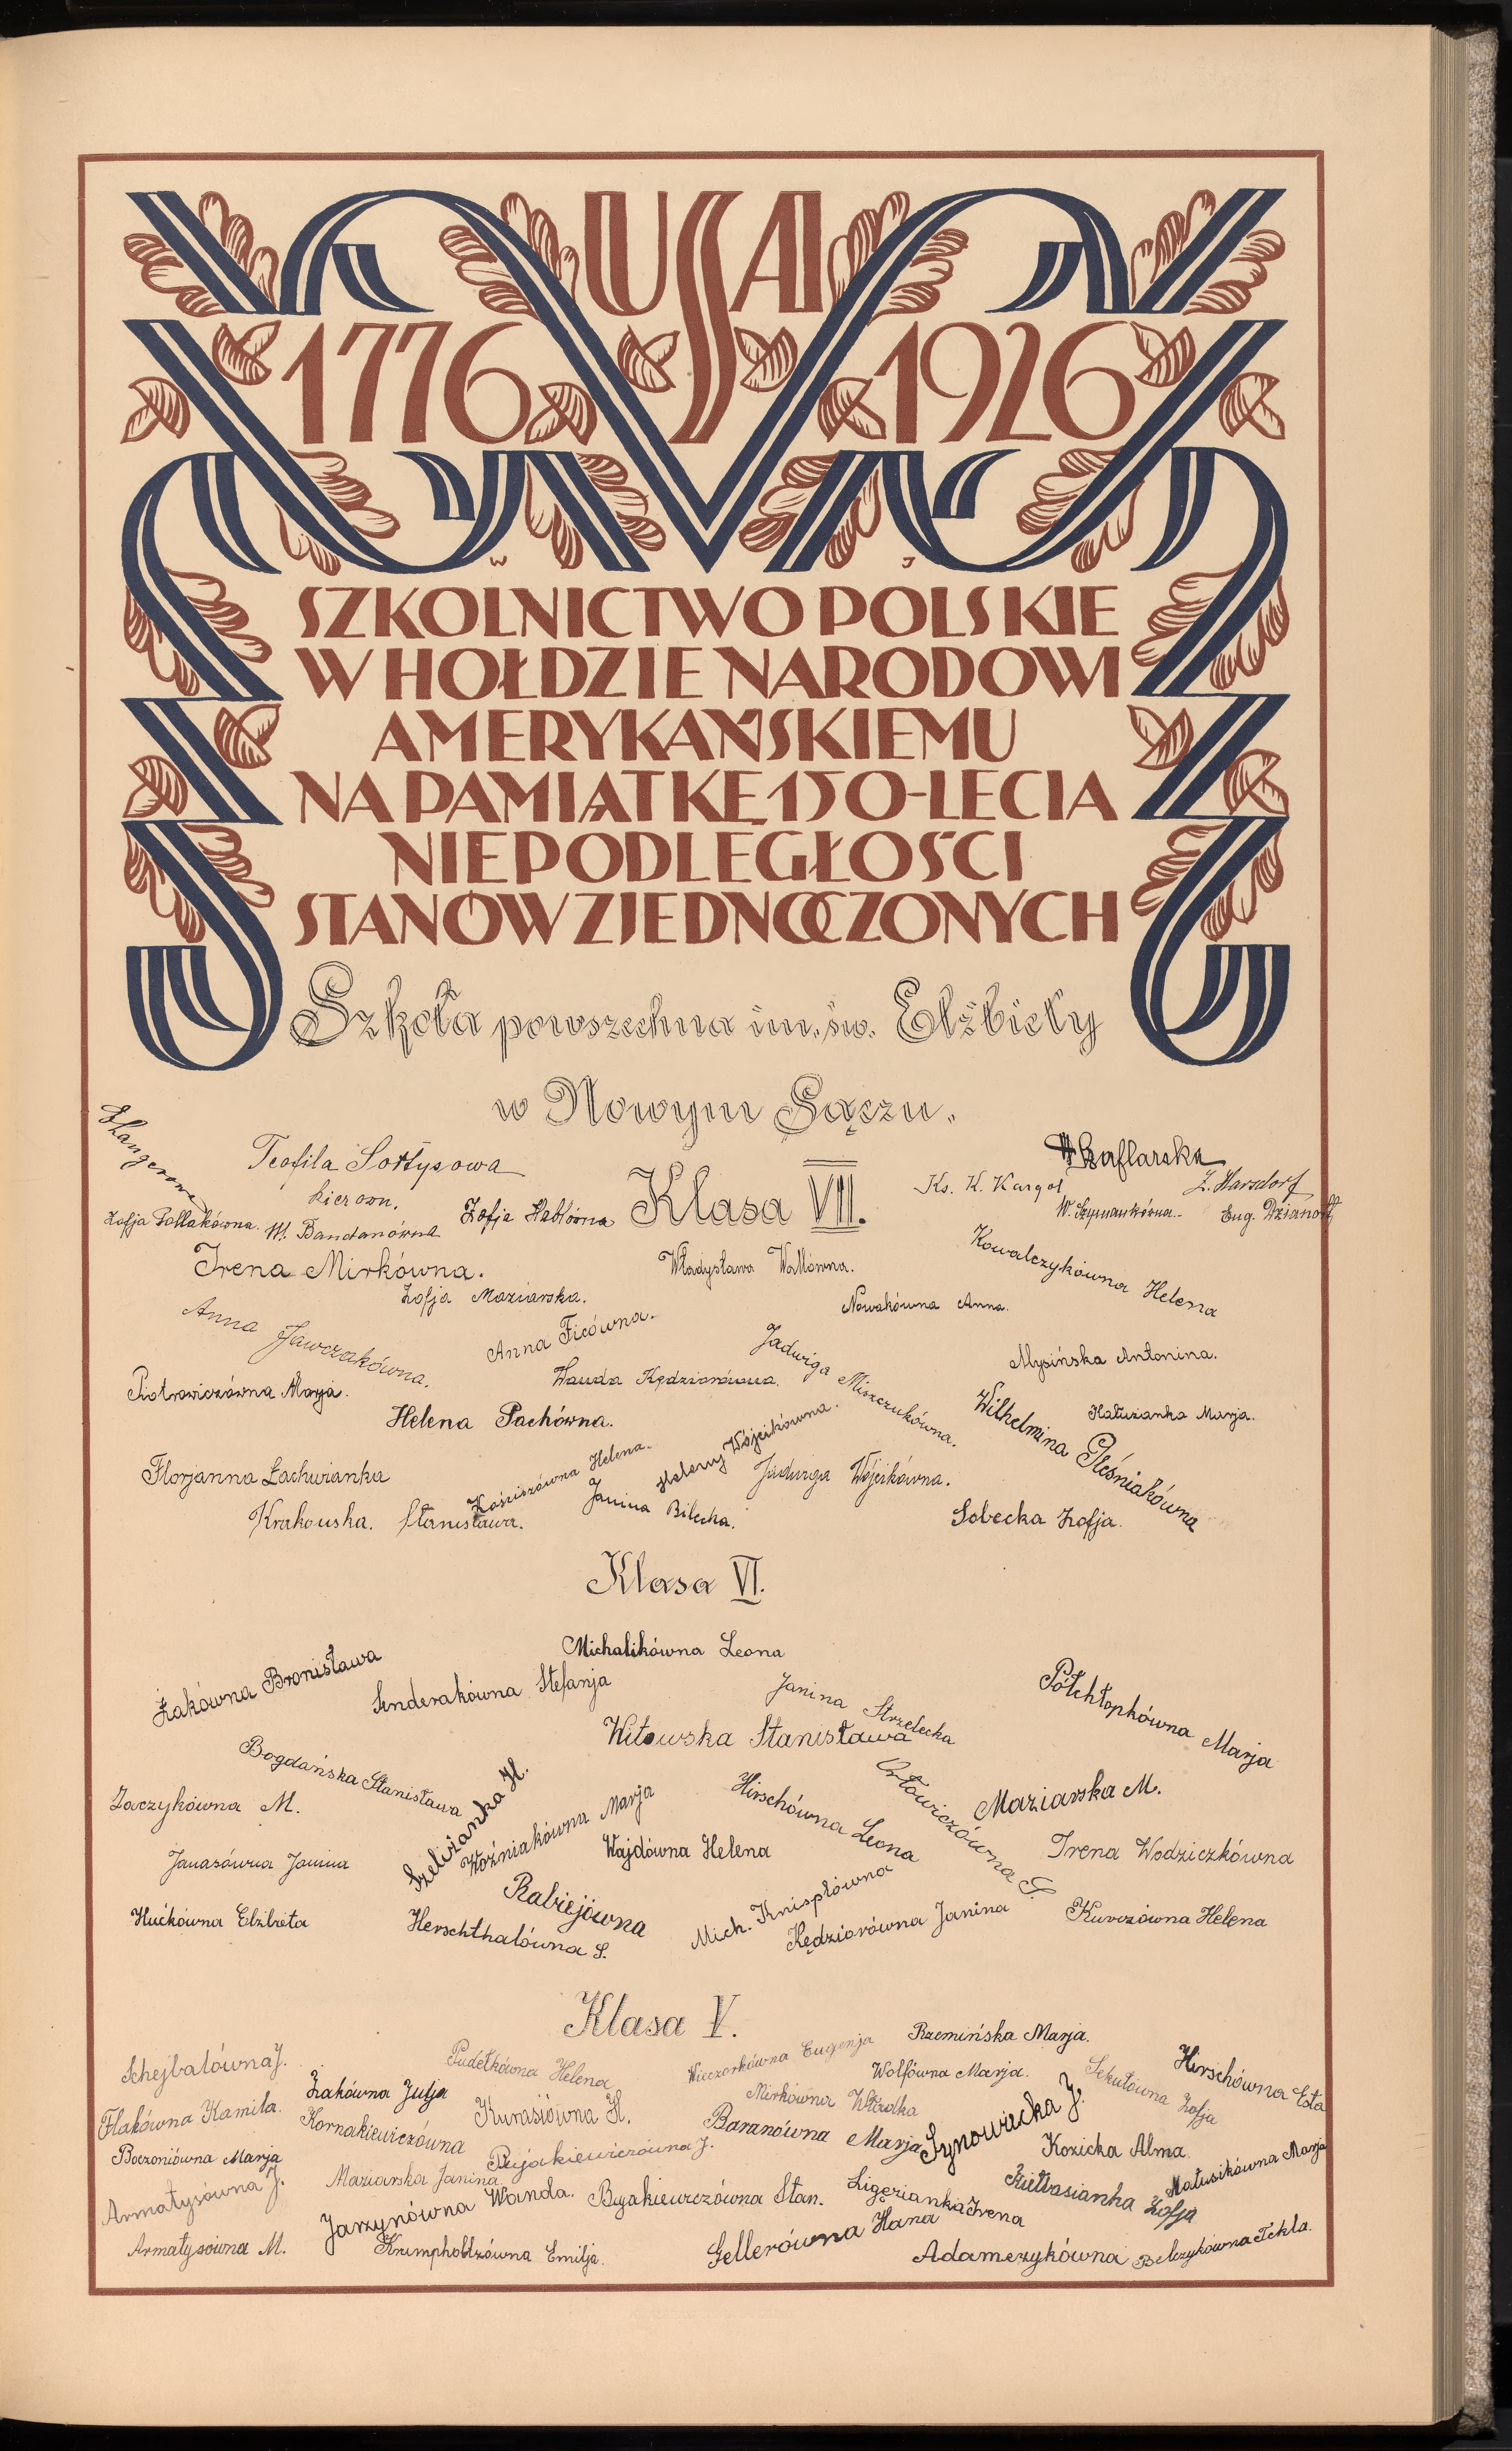 USA
1776 1926
W J
SZKOLNICTWO POLSKIE
W HOŁDZIE NARODOWI
AMERYKAŃSKIEMU
NA PAMIĄTKĘ 150-LECIA
NIEPODLEGŁOŚCI
STANÓW ZJEDNOCZONYCH
Szkoła powszechna im. św. Elżbiety
w Nowym Sączu.
Teofila Sołtysowa
kierown.
Zofja Pollakówna. W. Bandanówna
Zofja Hablówna
Szaflarska
Ks. K. Kargol
Z. Harsdorf
W. Szymankówna
Eug.
Klasa VII.
Irena Mirkówna.
Władysława Wallówna.
Kowalczykówna Helena
Zofja Maziarska.
Nowakówna Anna.
Anna Jawczakówna.
Anna Ficówna.
Jadwiga Miszczukówna.
Mysińska Antonina.
Piotrowiczówna Marja.
Wanda Kędziorówna.
Helena Pachówna.
Wilhelmina Pleśniakówna
Hałużanka Marja.
Florjanna Łachwianka
Kościszówna Helena.
Helena Wójcikówna.
Jadwiga Wójcikówna.
Krakowska. Stanisława.
Janina Bilecka.
Sobecka Zofja.
Klasa VI.
Michalikówna Leona
Żakówna Bronisława
Senderakówna Stefanja
Janina Strzelecka
Półchłopkówna Marja
Witowska Stanisława
Bogdańska Stanisława
Zaczykówna M.
Szeliżanka H.
Woźniakówna Marja
Hirschówna Leona
Orłowiczówna S.
Maziarska M.
Janasówna Janina
Wajdówna Helena
Irena Wodziczkówna
Rabiejówna
Mich. Knispłówna
Hućkówna Elżbieta
Herschthalówna S.
Kędziorówna Janina
Kurczówna Helena
Klasa V.
Schejbalówna J.
Pudełkówna Helena
Wieczorkówna Eugenja
Rzemińska Marja.
Wolfówna Marja.
Hirschówna Esta
Flakówna Kamila.
Żakówna Julja
Kornakiewiczówna
Kurasiówna H.
Mirkówna Władka
Sekułówna Zofja
Baranówna Marja
Synowiecka J.
Kozicka Alma
Boczoniówna Marja
Bujakiewiczówna J.
Armatysówna J.
Maziarska Janina
Matusikówna Marja
Jarzynówna Wanda.
Bujakiewiczówna Stan.
Ligęzianka Irena
Kiełbasianka Zofja
Armatysówna M.
Krumpholzówna Emilja.
Gellerówna Hana
Adamczykówna
Belczykówna Tekla.